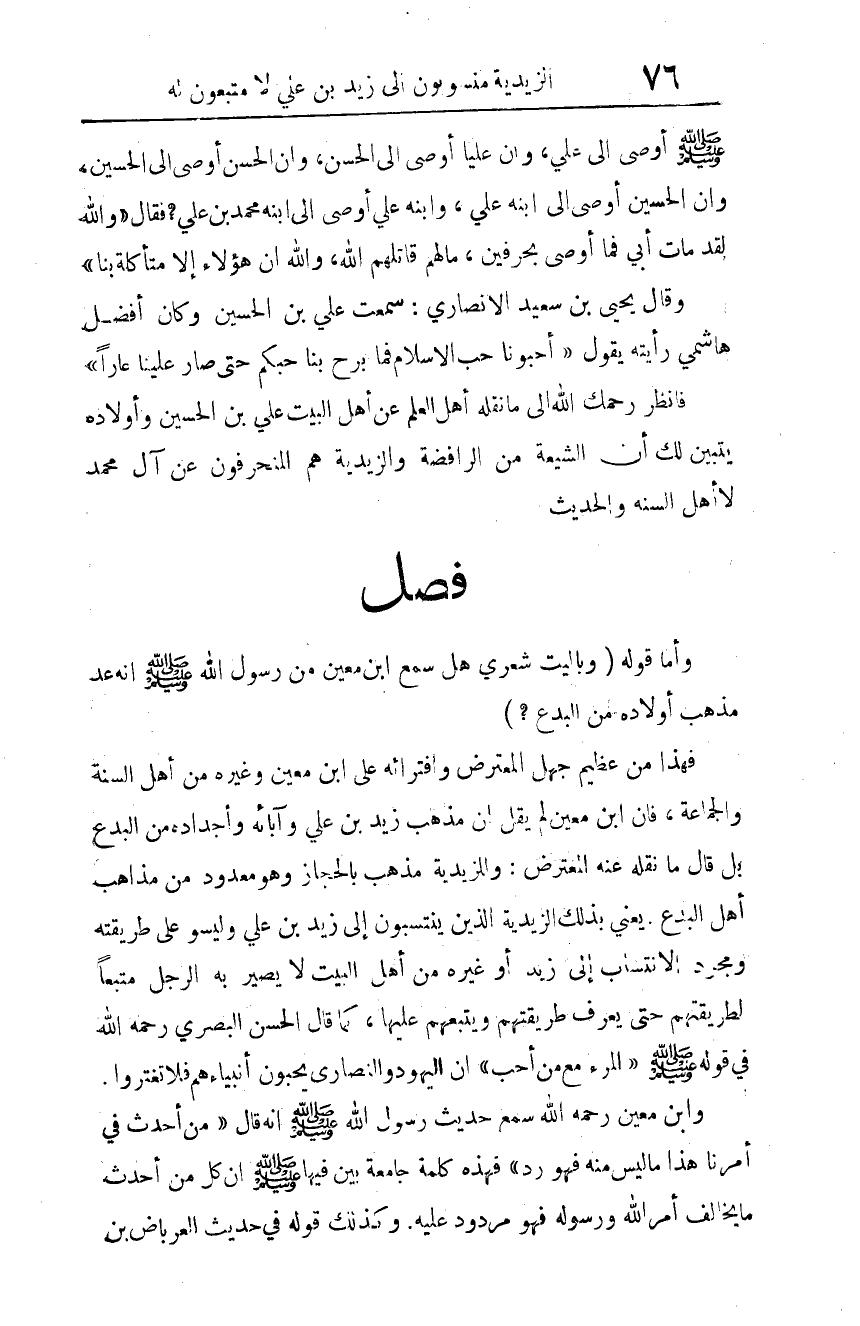 ٧٦ الزيدية منسوبون الى زيد بن علي لا متبعون له
ﷺ أوصى الى علي، وان عليا أوصى الى الحسن، وان الحسن أوصى الى الحسين،
وان الحسين أوصى الى ابنه علي ، وابنه علي أوصى الى ابنه محمد بن علي؟ فقال «والله
لقد مات أبي فما أوصى بحرفين ، مالهم قاتلهم الله، والله ان هؤلاء إلا متأكلة بنا»
وقال يحيى بن سعيد الانصاري : سمعت علي بن الحسين وكان أفضل
هاشمي رأيته يقول « أحبونا حب الاسلام فما برح بنا حبكم حتى صار علينا عاراً»
فانظر رحمك الله الى مانقله أهل العلم عن أهل البيت علي بن الحسين وأولاده
يتبين لك أن الشيعة من الرافضة والزيدية هم المنحرفون عن آل محمد
لا أهل السنه والحديث
فصل
وأما قوله ( وياليت شعري هل سمع ابن معين من رسول الله ﷺ انه عد
مذهب أولاده من البدع ؟ )
فهذا من عظيم جهل المعترض وافترائه على ابن معين وغيره من أهل السنة
والجماعة ، فان ابن معين لم يقل ان مذهب زيد بن علي وآبائه وأجداده من البدع
بل قال ما نقله عنه المعترض : والزيدية مذهب بالحجاز وهو معدود من مذاهب
أهل البدع . يعني بذلك الزيدية الذين ينتسبون إلى زيد بن علي وليسو على طريقته
ومجرد الانتساب إلى زيد أو غيره من أهل البيت لا يصير به الرجل متبعاً
لطريقتهم حتى يعرف طريقتهم ويتبعهم عليها ، كما قال الحسن البصري رحمه الله
في قوله ﷺ « المرء مع من أحب» ان اليهود والنصارى يحبون أنبياءهم فلا تغتروا .
وابن معين رحمه الله سمع حديث رسول الله ﷺ انه قال « من أحدث في
أمرنا هذا ماليس منه فهو رد» فهذه كلمة جامعة بين فيها ﷺ ان كل من أحدث
مايخالف أمر الله ورسوله فهو مردود عليه. وكذلك قوله في حديث العرباض بن